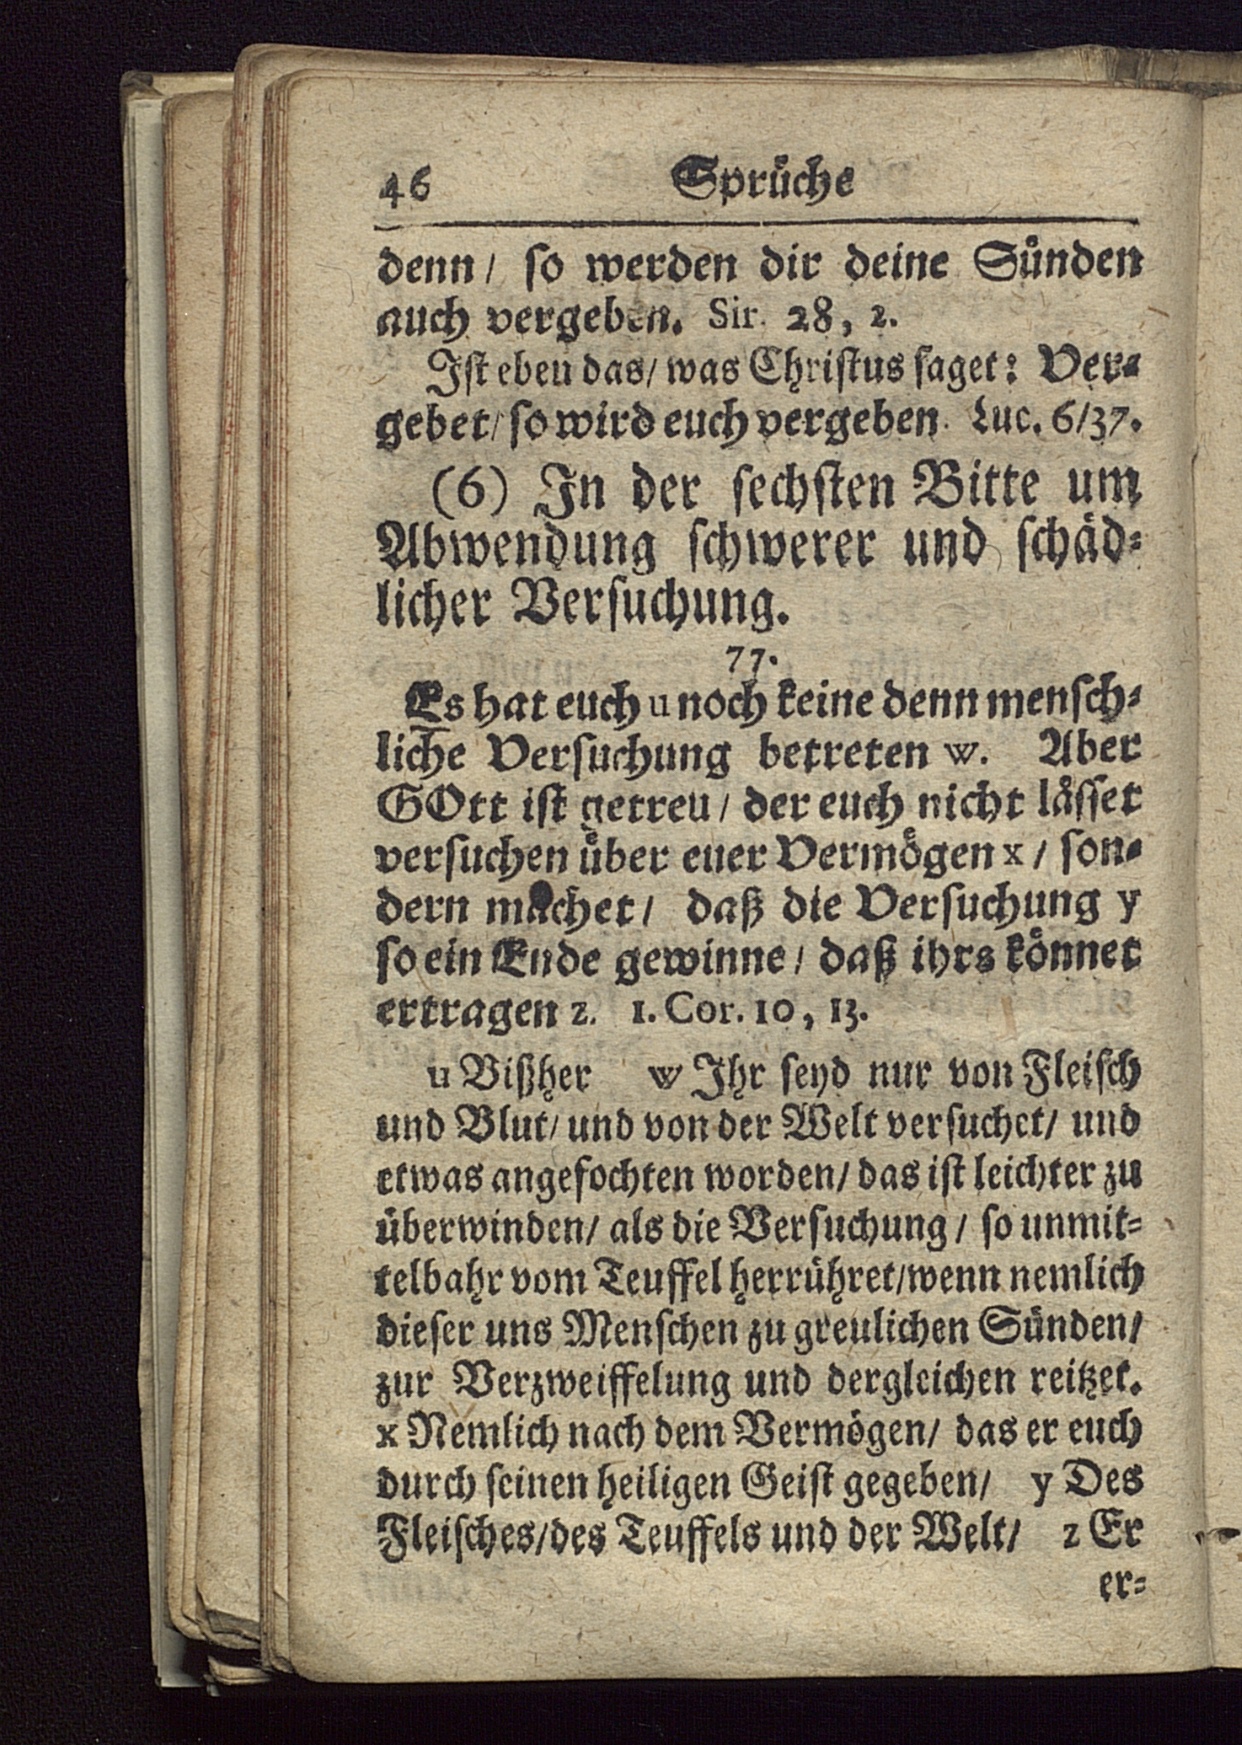 46 Sprüche
denn/ so werden dir deine Sünden
auch vergeben. Sir. 28, 2.
Ist eben das/ was Christus saget: Ver-
gebet/ so wird euch vergeben. Luc. 6/37.
(6) In der sechsten Bitte um
Abwendung schwerer und schäd-
licher Versuchung.
77.
Es hat euch u noch keine denn mensch-
liche Versuchung betreten w. Aber
GOtt ist getreu/ der euch nicht lässet
versuchen über euer Vermögen x/ son-
dern machet/ daß die Versuchung y
so ein Ende gewinne/ daß ihrs könnet
ertragen z. 1. Cor. 10, 13.
u Bißher w Ihr seyd nur von Fleisch
und Blut/ und von der Welt versuchet/ und
etwas angefochten worden/ das ist leichter zu
überwinden/ als die Versuchung/ so unmit-
telbahr vom Teuffel herrühret/wenn nemlich
dieser uns Menschen zu greulichen Sünden/
zur Verzweiffelung und dergleichen reitzet.
x Nemlich nach dem Vermögen/ das er euch
durch seinen heiligen Geist gegeben/ y Des
Fleisches/des Teuffels und der Welt/ z Er
er-